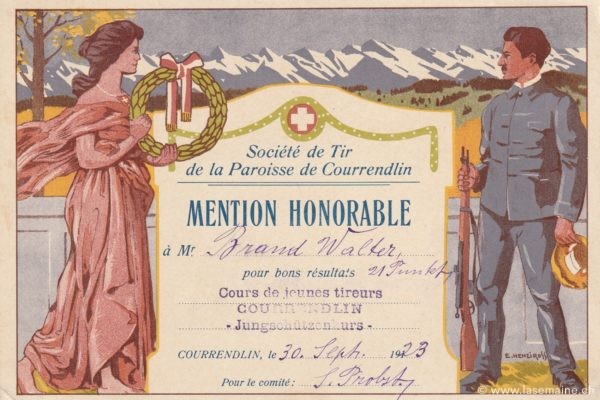 Société de Tir
de la Paroisse de Courrendlin
MENTION HONORABLE
à Mr Brand Walter,
pour bons résultats 21 Punkt
Cours de jeunes tireurs
COURRENDLIN
- Jungschützenkurs -
COURRENDLIN, le 30. Sept. 1923
Pour le comité: S. Probst
© www.lasemaine.ch